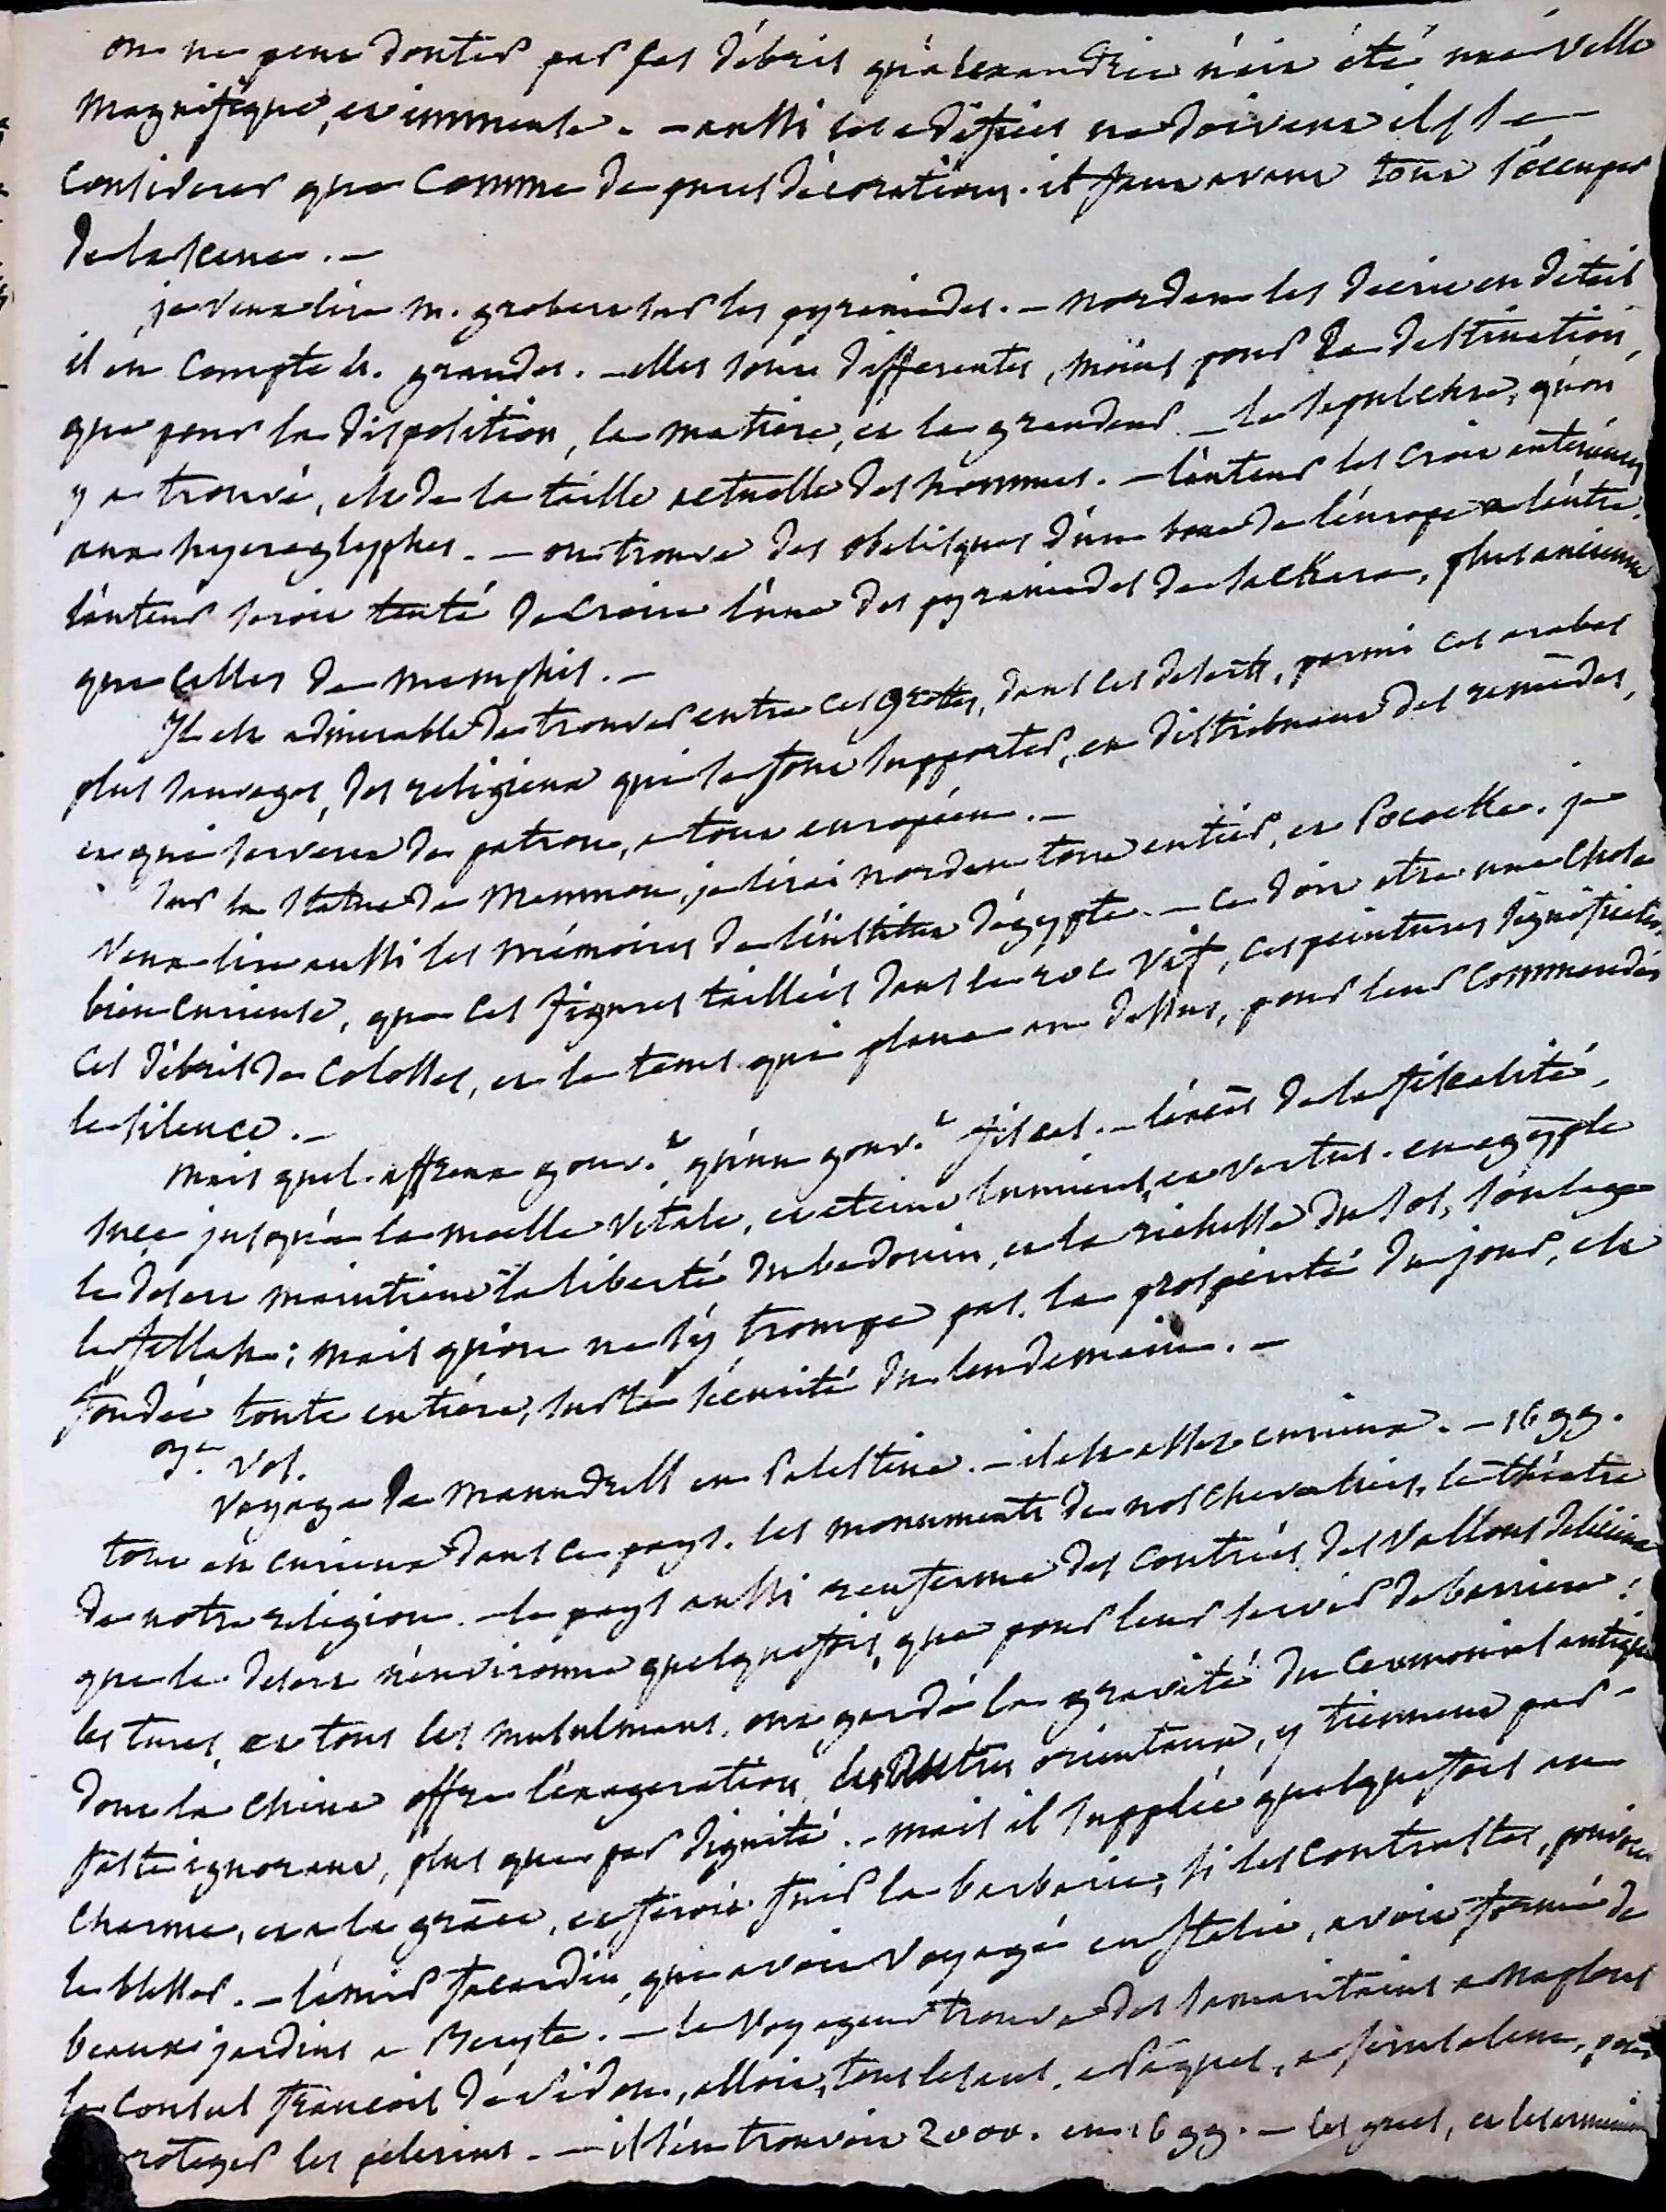 on ne peut douter par ses débris qu'alexandrie n'ait été une ville
magnifique, et immense. – aussi ses edifices ne doivent ils se
considerer que comme de pures décorations. il faut avant tout s'occuper
de la scene. –
je veux lire m. grobert sur les pyramides. – norden les decrit en détail
il en compte 4. grandes. – elles sont differentes, moins pour la destination,
que pour la disposition, la matière, et la grandeur – le sepulchre, qu'on
y a trouvé, est de la taille actuelle des hommes. – l'auteur les croit anterieures
aux hyeroglyphes. – on trouve des obelisques d'un bout de l'europe a l'autre.
l'auteur seroit tenté de croire l'une des pyramides de sackara, plus ancienne
que celles de memphis. –
Il est admirable de trouver entre ces grottes, dans ces deserts, parmi ces arabes
plus sauvages, des religieux qui se font supporter, en distribuant des remèdes,
et qui servent de patrons, a tout européen. –
sur la statue de Memnon, je lirai norden tout entier, et Pococke. je
veux lire aussi les mémoires de l'institut d'égypte. – ce doit etre une chose
bien curieuse, que ces figures taillées dans le roc vif, ces peintures significatives
ces débris de colosses, et le tems qui plane au dessus, pour leur commander
le silence. –
mais quel affreux gouv.t qu'un gouv.t fiscal. – l'excès de la fiscalité,
suce jusqu'a la moelle vitale, et eteint lumieres, et vertus. en egypte
le desert maintient la liberté du bedouin, et la richesse du sol, soulage
le fellah; mais qu'on ne s'y trompe pas. la prospérité du jour, est
fondée toute entière, sur la sécurité du lendemain. –
3.e vol.
Voyage de Maundrell en Palestine. – il est assez curieux. – 1699.
tout est curieux dans ce pays. les monuments de nos chevaliers, le théatre
de notre religion. – le pays aussi renferme des contrées, des vallons delicieux
que le desert n'environne quelquefois, que pour leur servir de barriere:
les turcs, et tous les musulmans, ont gardé la gravité du ceremonial antique
dont la chine offre l'exageration. les autres orientaux, y tiennent par
faste ignorant, plus que par dignité. – mais il supplée quelquefois au
charme, et a la grâce, et feroit fuir la barbarie, si les contrastes, pouvoient
la blesser. – l'emir facardin, qui avoit voyagé en Italie, avoit formé de
beaux jardins a Beryte. – le voyageur trouva des samaritains a Naplous
le consul francois de Sidon, alloit, tous les ans, a Pâques, a jerusalem, pour
proteger les pelerins. – il s'en trouvoit 2000. en 1699. – les grecs, et les armeniens